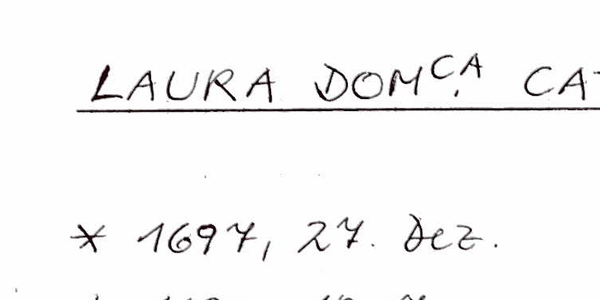 LAURA DOMCA. CAT
* 1697, 27. Dez.